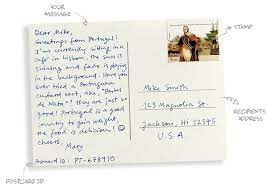 YOUR MESSAGE
Dear Mike,
Greetings from Portugal!
I'm currently sitting in a
cafe in Lisbon, the sun is
shining and fado is playing
in the background. Have you
ever tried a Portuguese
custard tart, aka, "Pastel
de Nata"? They are just so
good! Portugal is a good
country to gain weight,
the food is delicious! ☺
Cheers,
Mary
Postcard ID: PT-678910
STAMP
Mike Smith
123 Magnolia St.
Jackson, HI 12345
U.S.A
RECIPIENTS ADDRESS
POSTCARD ID